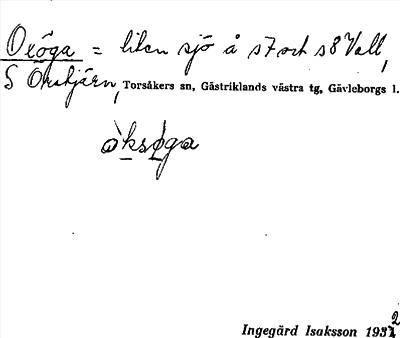 Oxöga = liten sjö å s7 och s8 Vall,
S Oxtjärn, Torsåkers sn, Gästriklands västra tg, Gävleborgs l.
òksøga
Ingegärd Isaksson 1932